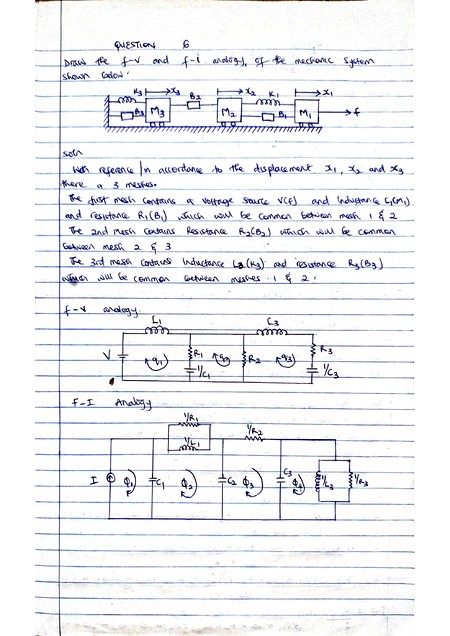 QUESTION 6
Draw the f-v and f-i analogy, of the mechanic system
shown below:
K3 x3 B2 x2 K1 x1
B3 M3 M2 B1 M1 f
soln
With reference/in accordance to the displacement x1, x2 and x3
there a 3 meshes.
The first mesh contains a voltage source V(f) and Inductance L1(M1)
and resistance R1(B1) which will be common between mesh 1 & 2
The 2nd mesh contains Resistance R2(B2) which will be common
between mesh 2 & 3
The 3rd mesh contains Inductance L3(K3) and resistance R3(B3)
which will be common between meshes 1 & 2.
f-v analogy
L1 L3
V q1 R1 q2 R2 q3 R3
1/C1 1/C3
F-I Analogy
1/R1
1/L1 1/R2
I Φ1 C1 Φ2 C2 Φ3 C3 Φ4 1/L3 1/R3